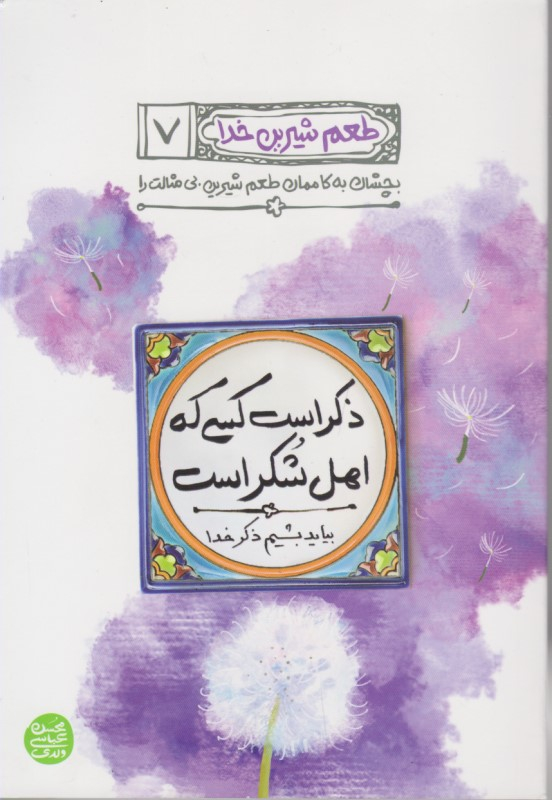 طعم شیرین خدا
۷
بچشان به کاممان طعم شیرین بی مثالت را
ذکر است کسی که
اهل شکر است
بیاید بشیم ذکر خدا
محسن
عباسی
ولدی